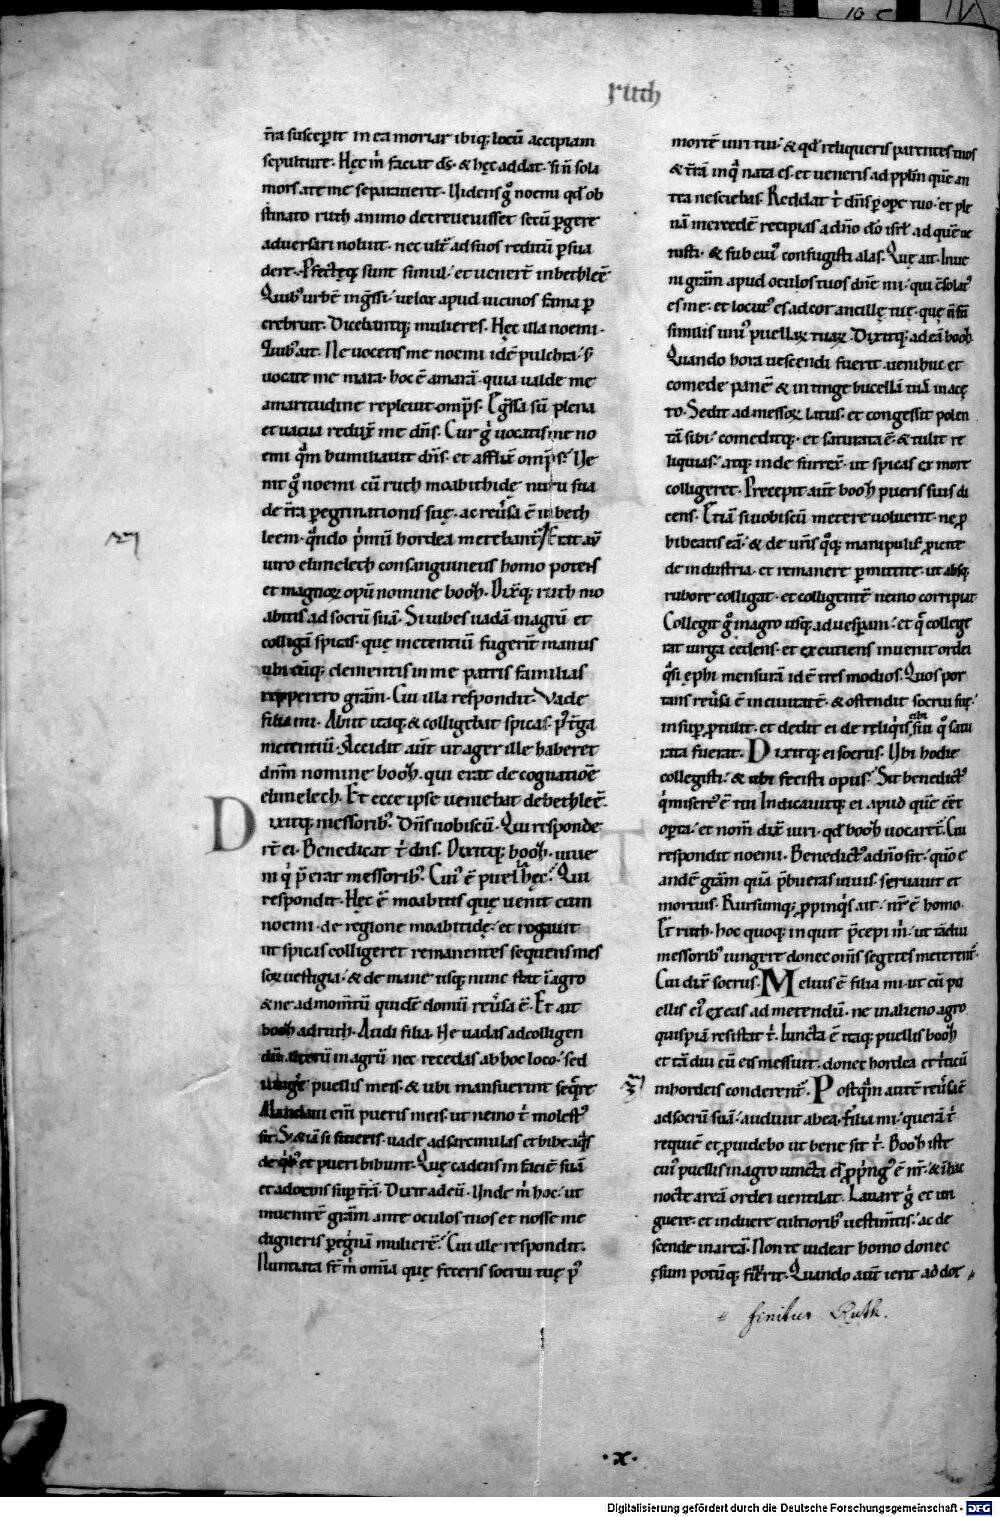 ruth
n̄ra susceperit in ea moriar ibiq; locū accipiam
sepulture. Hęc m̄ faciat dś. & hęc addat. si n̄ sola
mors a te me separauerit. Uidens g̊ noemi qđ ob
stinato ruth animo decreuisset secū pgere
aduersari noluit. nec ultͣ ad suos reditū psua
dere. Pfectęq; sunt simul. et uenerт̄ in bethleē
Quib; urbē ingͥssi. uelox apud uicinos fama p
crebruit. Dicebantq; mulieres. Hęc illa noemi.
Quib; ait. Ne uocetis me noemi idē pulchra. sʒ
uocate me mara. hoc ē amarā. quia ualde me
amaritudine repleuit omps̄. Egͥssa sū plena
et uacua reduxͭ me dn̄s. Cur gͦ uocatis me no
emi qͣm humiliauit dn̄s. et afflixͭ omps̄. Ue
nit gͦ noemi cū ruth moabithidę nuru sua
de tr̄a peͥgrinationis suę. ac reuͥsa ē in beth
leem. qͣndo pͥmū hordea metebant. Erat aū
uiro elimelech consanguineus homo potens
et magnoꝝ opū nomine booꝫ. Dixͭq; ruth mo
abitis ad socrū suā. Si iubes uadā in agrū et
colligā spicas. quę metentiū fugerint manus
ubicūq; clementis in me patris familias
repperero grām. Cui illa respondit. Vade
filia mi. Abiit itaq; & colligebat spicas. p̄ tͥga
metentiū. Accidit aūt ut ager ille haberet
dnm̄ nomine booꝫ. qui erat de cognatiōe
elimelech. Et ecce ipse ueniebat de bethleē.
Dixitq; messorib;. Dn̄s uobiscū. Qui responde
rт̄ ei. Benedicat t̄ dn̄s. Dixitq; booꝫ. iuue
ni qͥ p̄erat messorib;. Cui; ē puella hęc. Qui
respondit. Hęc ē moabitis quę uenit cum
noemi. de regione moabitidę. et rogauit
ut spicas colligeret remanentes sequens mes
soꝝ uestigia. & de mane usq; nunc stat ī agro
& ne ad momт̄ū quidē domū reuͥsa ē. Et ait
booꝫ ad ruth. Audi filia. Ne uadas ad colligen
dū alterū in agrū nec recedas ab hoc loco. sed
iungͤ puellis meis. & ubi messuerint seqͤre
Mandaui em̄ pueris meis. ut nemo t̄ molest;
sit. S; & iā si sitieris. uade ad sarcinulas et bibe aqͣs
de qͥb; et pueri bibunt. Quę cadens in faciē suā
et adorans sup tr̄ā. Dixit ad eū. Unde m̄ hoc. ut
inuenirē grām ante oculos tuos et nosse me
digneris pegͥnā mulierē. Cui ille respondit.
Nuntiata st̄ m̄ omīa quę feceris socrui tuę p̄
mortē uiri tui. & qđ reliqueris parentes tuos
& tr̄ā in qͣ nata es. et ueneris ad ppłm quē an
tea nesciebas. Reddat t̄ dn̄s p ope tuo. et ple
nā mercedē recipias a dn̄o dō isrł. ad quē ue
nisti. & sub cui; confugisti alas. Quę ait. Inue
ni grām apud oculos tuos dn̄e mi. qui c̄solat;
es me. et locut; es ad cor ancillę tuę. quę n̄ sū
similis uni; puellaꝝ tuaꝝ. Dixitq; ad eā booꝫ
Quando hora uescendi fuerit. ueni huc et
comede panē & intinge bucellā tuā in acę
to. Sedit ad messoꝝ latus. et congessit polen
tā sibi. comeditq;. et saturata ē. & tulit re
liquias. atq; inde surrexͭ. ut spicas ex more
colligeret. Precepit aūt booꝫ pueris suis di
cens. Etiā si uobiscū metere uoluerit. ne p
hibeatis eā. & de uris̄ qͦq; manipulis pͥicite
de industria. et remanere pmittite. ut absq;
rubore colligat. et colligentē nemo corripiat
Collegit gͦ in agro usq; ad uesperam. et qͣ college
rat uirga cędens. et excutiens inuenit ordei
qͣsi ęphi mensurā id ē tres modios. Quos por
tans reuͥsa ē in ciuitatē. & ostendit socrui suę.
insup ptulit. et dedit ei de reliqͥis cibi sui qͦ satu
rata fuerat. Dixitq; ei socrus. Ubi hodie
collegisti. & ubi fecisti opus. Sit benedict;
qͥ misert; ē tui Indicauitq; ei apud quē eēt
opata. et nom̄ dixͭ uiri. qđ booꝫ uocaretͬ. Cui
respondit noemi. Benedict; a dn̄o sit. quō e
andē grām quā p̄buerat uiuis. seruauit et
mortuis. Rursumq; ppinqͥs ait. nr̄ ē homo.
Et ruth. hoc quoq; inquit p̄cepi m̄. ut tādiu
messorib; iungerer donec oms̄ segetes meterentͬ.
Cui dixͭ socrus. Melius ē filia mi. ut cū pu
ellis ei; exeas ad metendū. ne in alieno agro
quispiā resistat t̄. Iuncta ē itaq; puellis booꝫ
et tādiu cū eis messuit. donec hordea et tͥticū
in horreis conderentͬ. Postqͣm autē reuͥsa ē
ad socrū suā. audiuit ab ea. Filia mi. querā t̄
requiē et puidebo ut bene sit t̄. Booꝫ iste
cui; puellis in agro iuncta es. ppīnq; ē nr̄. & ī hac
nocte areā ordei uentilat. Lauare gͦ et un
guere. et induere cultiorib; uestimт̄is. ac de
scende in areā. Non te uideat homo donec
ęsum potūq; finierit. Quando aūt ierit ad dor
finitur Ruth.
.x.
Digitalisierung gefördert durch die Deutsche Forschungsgemeinschaft - DFG